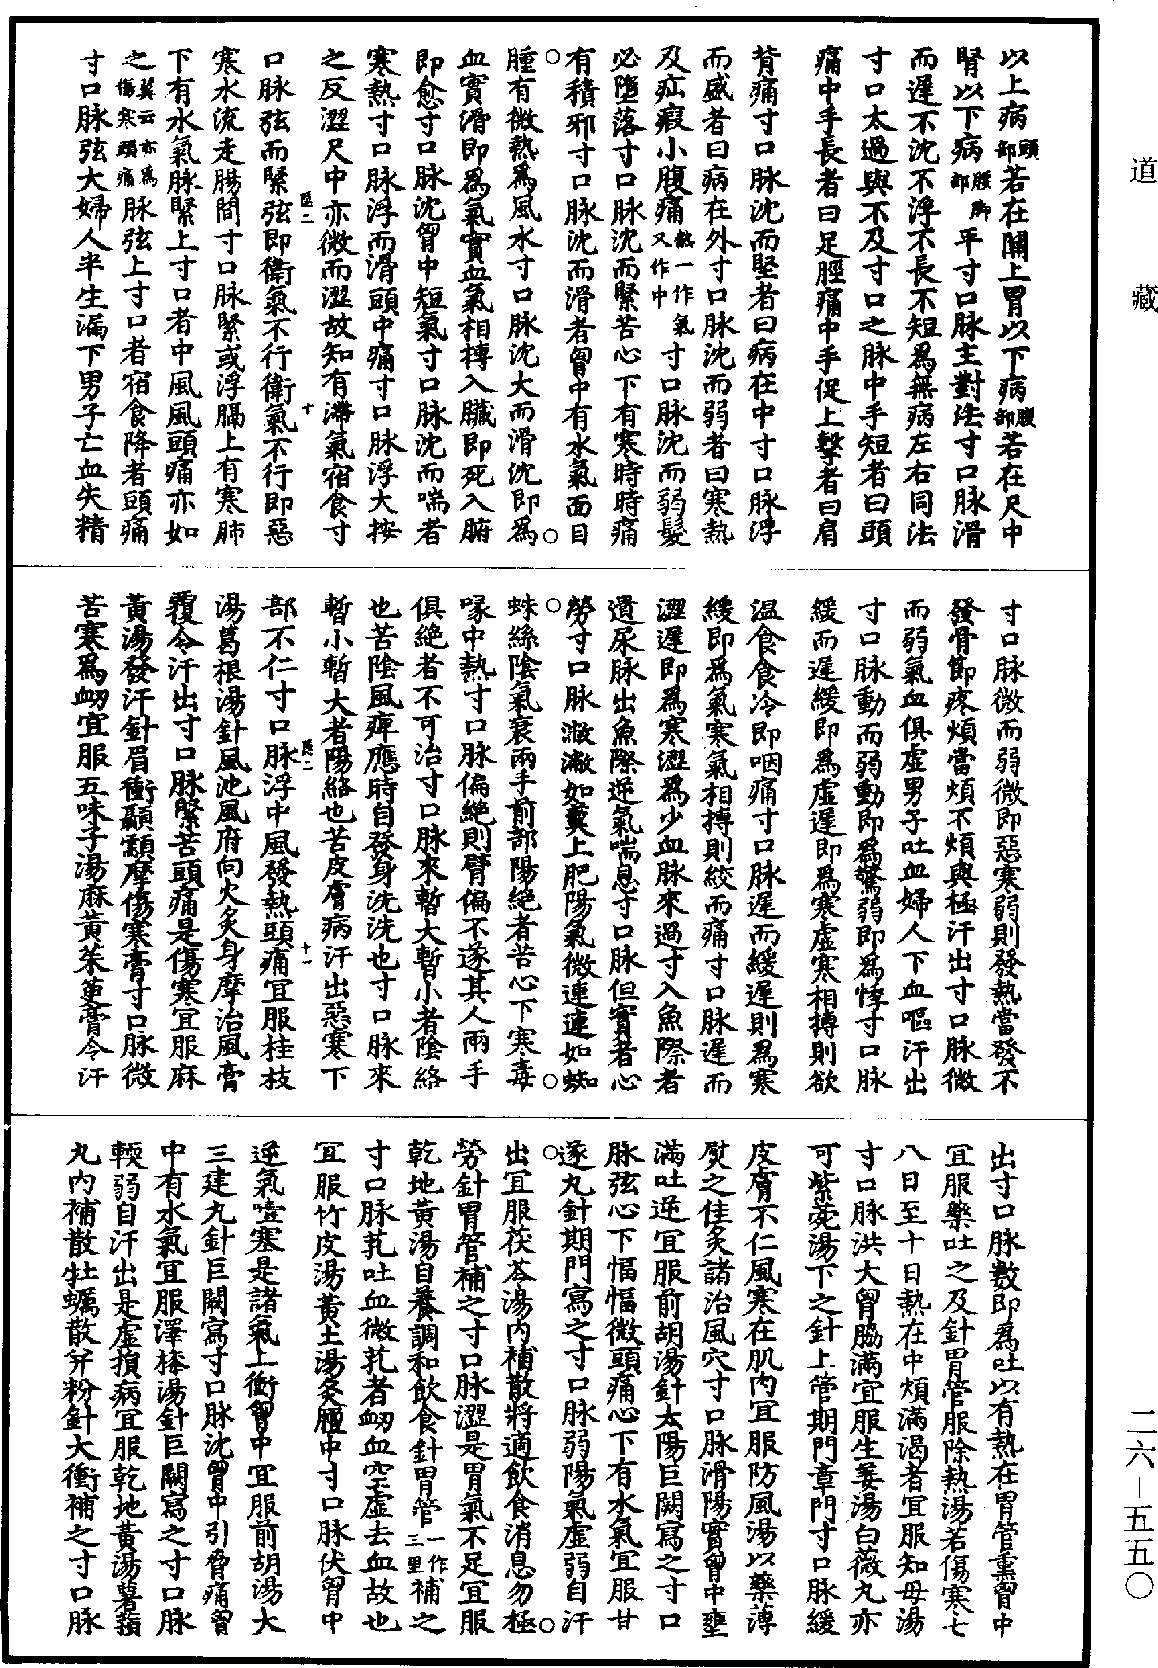 道藏
以上病頭部若在關上胃以下病腹部若在尺中
腎以下病腰脚部平寸口脉主對法寸口脉滑
而遲不沈不浮不長不短爲無病左右同法
寸口太過與不及寸口之脉中手短者曰頭
痛中手長者曰足脛痛中手促上擊者曰肩
背痛寸口脉沈而堅者曰病在中寸口脉浮
而盛者曰病在外寸口脉沈而弱者曰寒熱
及疝瘕小腹痛熱一作氣又作中寸口脉沈而弱髮
必墮落寸口脉沈而緊苦心下有寒時時痛
有積邪寸口脉沈而滑者胷中有水氣面目
腫有微熱爲風水寸口脉沈大而滑沈即爲
血實滑即爲氣實血氣相搏入臟即死入腑
即愈寸口脉沈胷中短氣寸口脉沈而喘者
寒熱寸口脉浮而滑頭中痛寸口脉浮大按
之反澀尺中亦微而澀故知有滯氣宿食寸
口脉弦而緊弦即衛氣不行衛氣不行即惡
寒水流走腸間寸口脉緊或浮膈上有寒肺
下有水氣脉緊上寸口者中風風頭痛亦如
之冀云亦爲傷寒頭痛脉弦上寸口者宿食降者頭痛
寸口脉弦大婦人半生漏下男子亡血失精
寸口脉微而弱微即惡寒弱則發熱當發不
發骨節疼煩當煩不煩與極汗出寸口脉微
而弱氣血俱虛男子吐血婦人下血嘔汗出
寸口脉動而弱動即爲驚弱即爲悸寸口脉
緩而遲緩即爲虛遲即爲寒虛寒相搏則欲
温食食冷即咽痛寸口脉遲而緩遲則爲寒
緩即爲氣寒氣相搏則絞而痛寸口脉遲而
澀遲即爲寒澀爲少血脉來過寸入魚際者
遺尿脉出魚際逆氣喘息寸口脉但實者心
勞寸口脉潎潎如羹上肥陽氣微連連如蜘
蛛絲陰氣衰兩手前部陽絕者苦心下寒毒
喙中熱寸口脉偏絕則臂偏不遂其人兩手
俱絕者不可治寸口脉來暫大暫小者陰絡
也苦陰風痺應時自發身洗洗也寸口脉來
暫小暫大者陽絡也苦皮膚病汗出惡寒下
部不仁寸口脉浮中風發熱頭痛宜服桂枝
湯葛根湯針風池風府向火炙身摩治風膏
覆令汗出寸口脉緊苦頭痛是傷寒宜服麻
黃湯發汗針眉衝顳顬摩傷寒膏寸口脉微
苦寒爲衂宜服五味子湯麻黃茱萸膏令汗
出寸口脉數即爲吐以有熱在胃管熏胷中
宜服藥吐之及針胃管服除熱湯若傷寒七
八日至十日熱在中煩滿渴者宜服知母湯
寸口脉洪大胷脇滿宜服生薑湯白薇丸亦
可紫菀湯下之針上管期門章門寸口脉緩
皮膚不仁風寒在肌肉宜服防風湯以藥薄
熨之佳灸諸治風穴寸口脉滑陽實胷中壅
滿吐逆宜服前胡湯針太陽巨闕寫之寸口
脉弦心下愊愊微頭痛心下有水氣宜服甘
遂丸針期門寫之寸口脉弱陽氣虛弱自汗
出宜服茯苓湯内補散將適飲食消息勿極
勞針胃管補之寸口脉澀是胃氣不足宜服
乾地黃湯自養調和飲食針胃管一作三里補之
寸口脉芤吐血微芤者衂血空虛去血故也
宜服竹皮湯黃土湯灸膻中寸口脉伏胷中
逆氣噎塞是諸氣上衝胷中宜服前胡湯大
三建丸針巨闕寫寸口脉沈胷中引脅痛胷
中有水氣宜服澤㯶湯針巨闕寫之寸口脉
輭弱自汗出是虛損病宜服乾地黃湯薯蕷
丸内補散牡蠣散并粉針大衝補之寸口脉
二六—五五〇